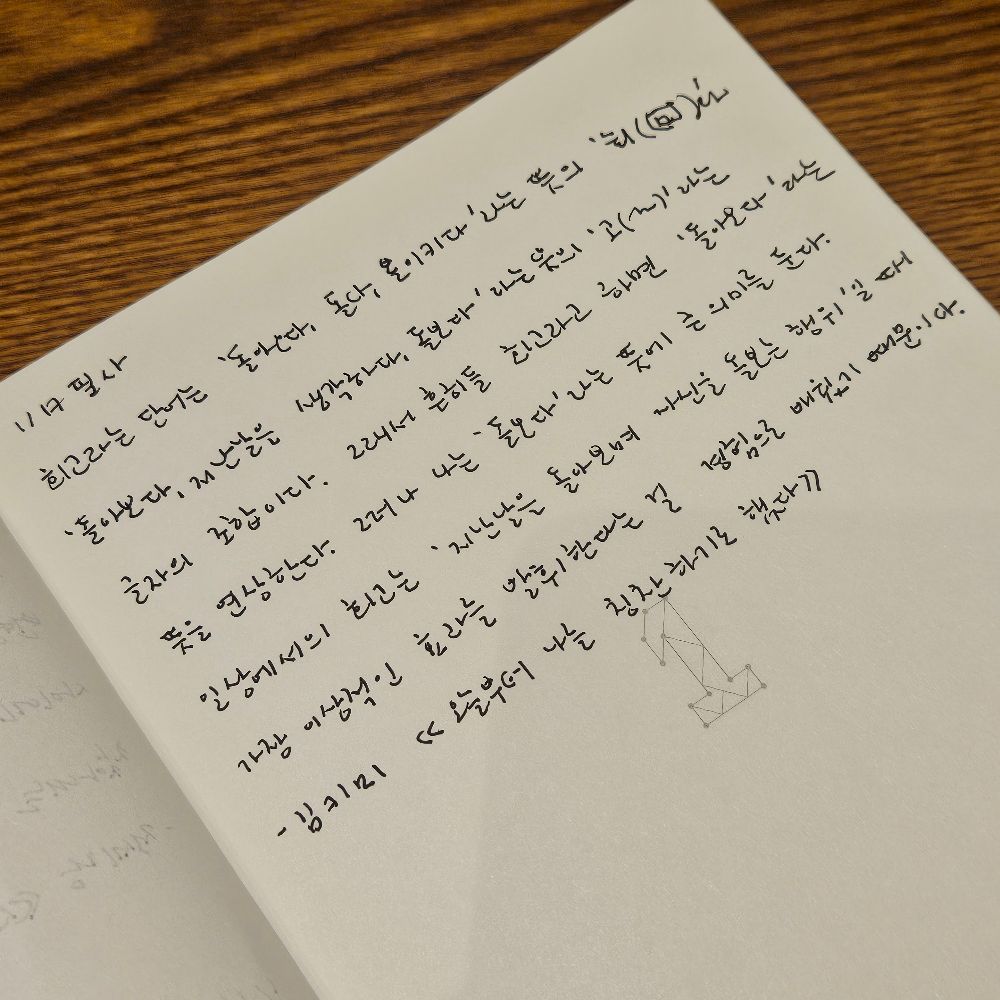 1/17 필사
회고라는 단어는 '돌아온다, 돈다, 돌이키다'라는 뜻의 '회(回)'와
'돌아본다, 지난날을 생각하다, 돌본다'라는 뜻의 '고(~)'라는
글자의 조합이다. 그래서 흔히들 회고라고 하면 '돌아온다'라는
뜻을 연상한다. 그러나 나는 '돌본다'라는 뜻에 큰 의미를 둔다.
일상에서의 회고는 '지난날을 돌아보며 자신을 돌보는 행위'일 때
가장 이상적인 효과를 발휘한다는 걸 경험으로 배웠기 때문이다.
- 김키미 《오늘부터 나를 칭찬하기로 했다》